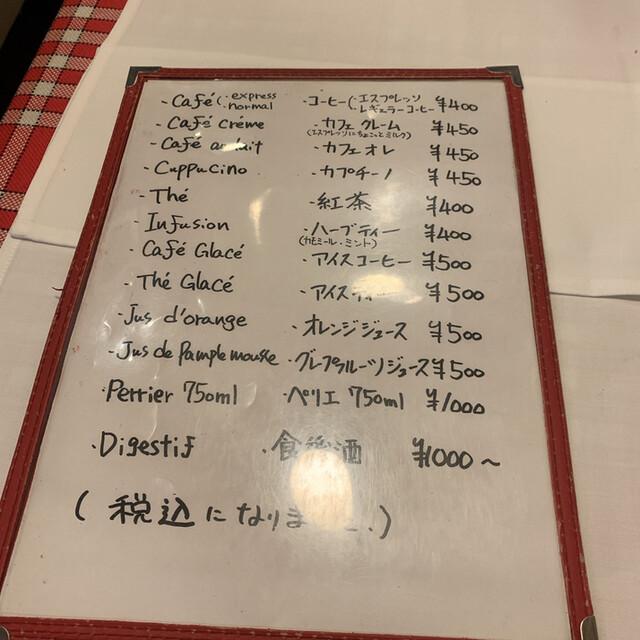 ・Café (・express ・normal ・コーヒー(・エスプレッソ ・レギュラーコーヒー ¥400
・Café Créme ・カフェ クレーム (エスプレッソにちょこっとミルク) ¥450
・Café au lait ・カフェオレ ¥450
・Cuppucino ・カプチーノ ¥450
・Thé ・紅茶 ¥400
・Infusion ・ハーブティー (カモミール・ミント) ¥400
・Café Glacé ・アイスコーヒー ¥500
・Thé Glacé ・アイスティー ¥500
・Jus d'orange ・オレンジジュース ¥500
・Jus de Pample mousse ・グレープフルーツジュース ¥500
・Perrier 750ml ・ペリエ 750ml ¥1000
・Digestif ・食後酒 ¥1000〜
(税込になります.)